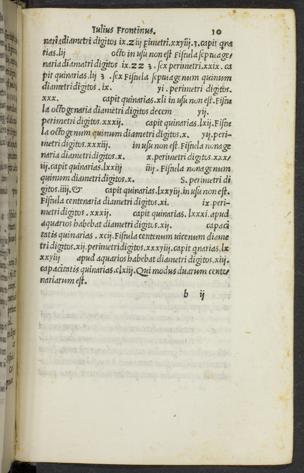 Iulius Frontinus. 10
naria diametri digitos ix.
rias.lij octo in usu non est Fistula septuage
naria diametri digitos ix. perimetri.xxix. ca
pit quinarias.lij Fistula septuagenum quinum
diametri digitos.ix. yi.perimetri digitos.
xxx. capit quinarias.xli in usu non est.Fistu
la octogenaria diametri digitos decem yij.
perimetri digitos.xxxij. capit quinarias.lxij.Fistu
la octogenum quinum diametri digitos.x. yij.peri-
metri digitos.xxxiij. in usu non est.Fistula nonage
naria diametri digitos.x. x.perimetri digitos.xxx/
iij.capit quinarias.lxxiij iiij.Fistula nonagenum
quinum diametri digitos.x. S.perimetri di
gitos.iiij.& capit quinarias.lxxyiij.in usu non est.
Fistula centenaria diametri digitos.xi. ix peri-
metri digitos.xxxij. capit quinarias.lxxxi.apud
aquarios habebat diametri digitos.xij. capaci
tatis quinarias.xcij.Fistula centenum uicenum diame
tri digitos.xij.perimetri digitos.xxxyiij.capit qnarias.lx
xxyiij apud aquarios habebat diametri digitos.xiij.
capacitatis quinarias.clxiij.Qui modus duarum cente
nariarum est.
b ij